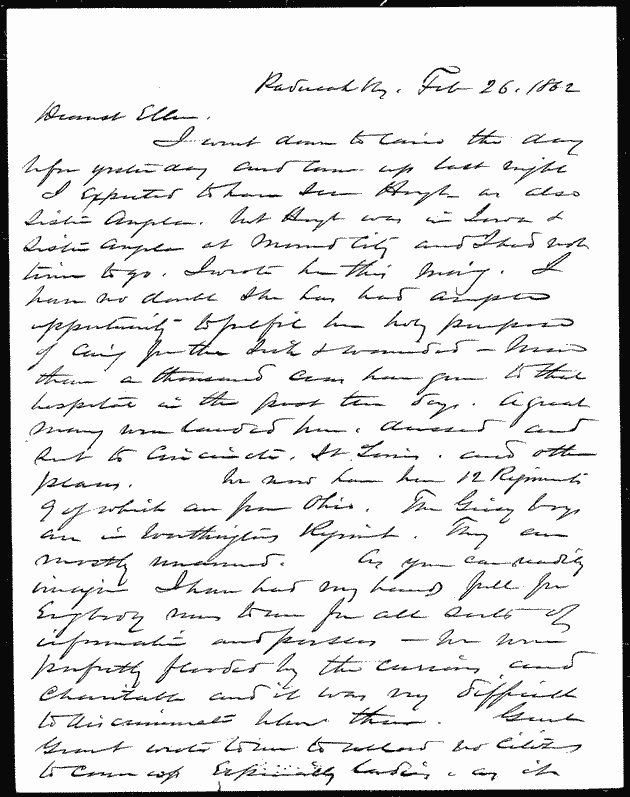 Paducah Ky. Feb 26. 1862
Dearest Ellen.
I went down to Cairo the day
before yesterday and came up last night
I expected to have seen Hugh as also
Sister Angela. but Hugh was in Iowa &
Sister Angela at Mound City and I had not
time to go. I wrote her this morning. I
have no doubt she has had ample
opportunity to fulfil her holy purpose
of caring for the sick & wounded – More
than a thousand cases have gone to that
hospital in the past ten days. A great
many were landed here. dressed and
sent to Cincinnati. St Louis. and other
places. We now have here 12 Regiments
9 of which are from Ohio. The boys
are in Worthingtons Regiment. They are
mostly unarmed. As you can readily
imagine I have had my hands full for
Everybody runs to me for all sorts of
information and passes – We were
perfectly flooded by the curious and
Charitable and it was very difficult
to discriminate between them. Genl
Grant wrote to me to allow no citizens
to come up Especially ladies. as it